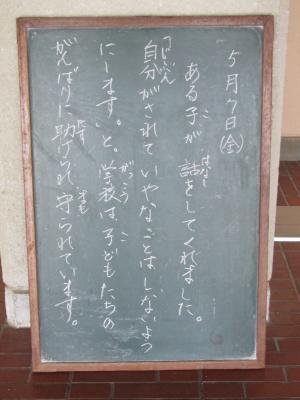 5月7日(金)
ある子が話をしてくれました。
「自分がされていやなことはしないよう
にします。」と。学校は子どもたちの
がんばりに助けられ守られています。